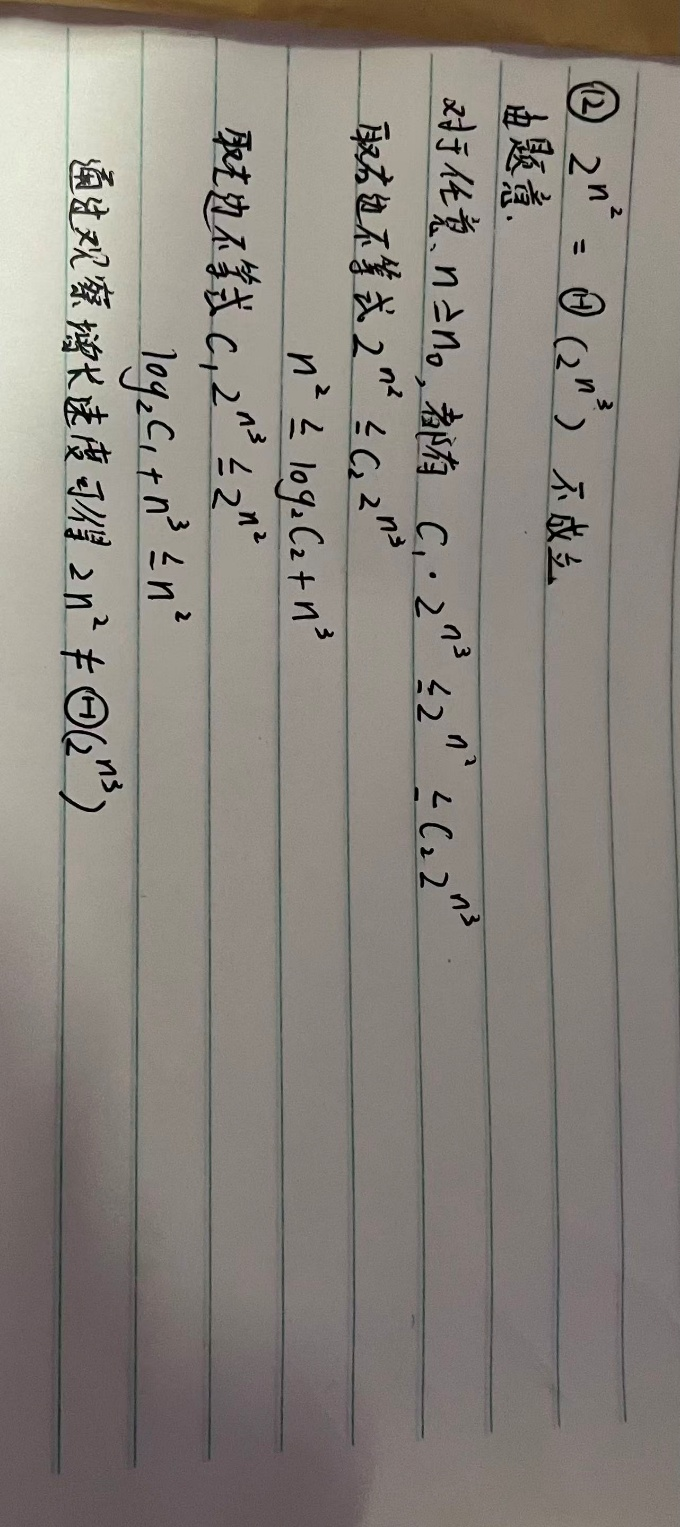 ⑫ 2^{n^2} = Θ(2^{n^3}) 不成立
由题意.
对于任意、n≥n₀, 都有 C₁·2^{n^3} ≤ 2^{n^2} ≤ C₂2^{n^3}.
取右边不等式 2^{n^2} ≤ C₂2^{n^3}
n² ≤ log₂C₂+n³
取左边不等式 C₁2^{n^3} ≤ 2^{n^2}
log₂C₁+n³ ≤ n²
通过观察增长速度可得 2n² ≠ Θ(2^{n^3})